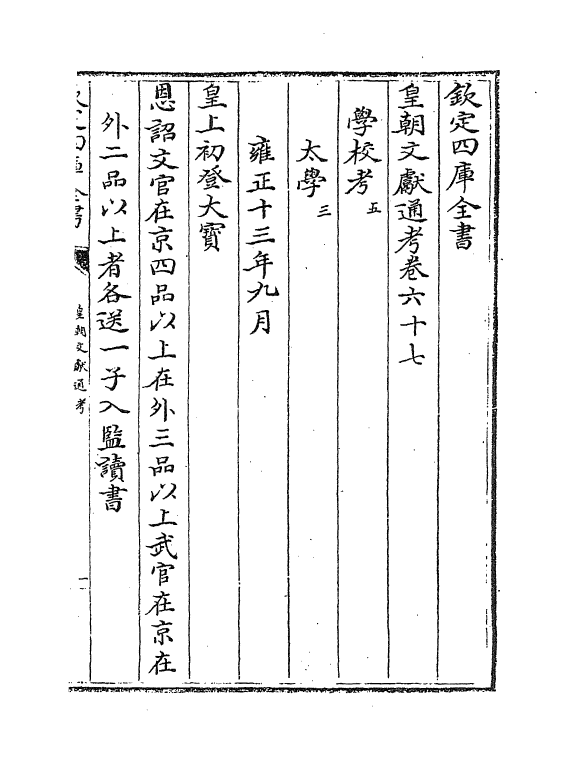 欽定四庫全書
皇朝文獻通考卷六十七
學校考五
太學三
雍正十三年九月
皇上初登大寶
恩詔文官在京四品以上在外三品以上武官在京在
外二品以上者各送一子入監讀書
皇朝文獻通考
一